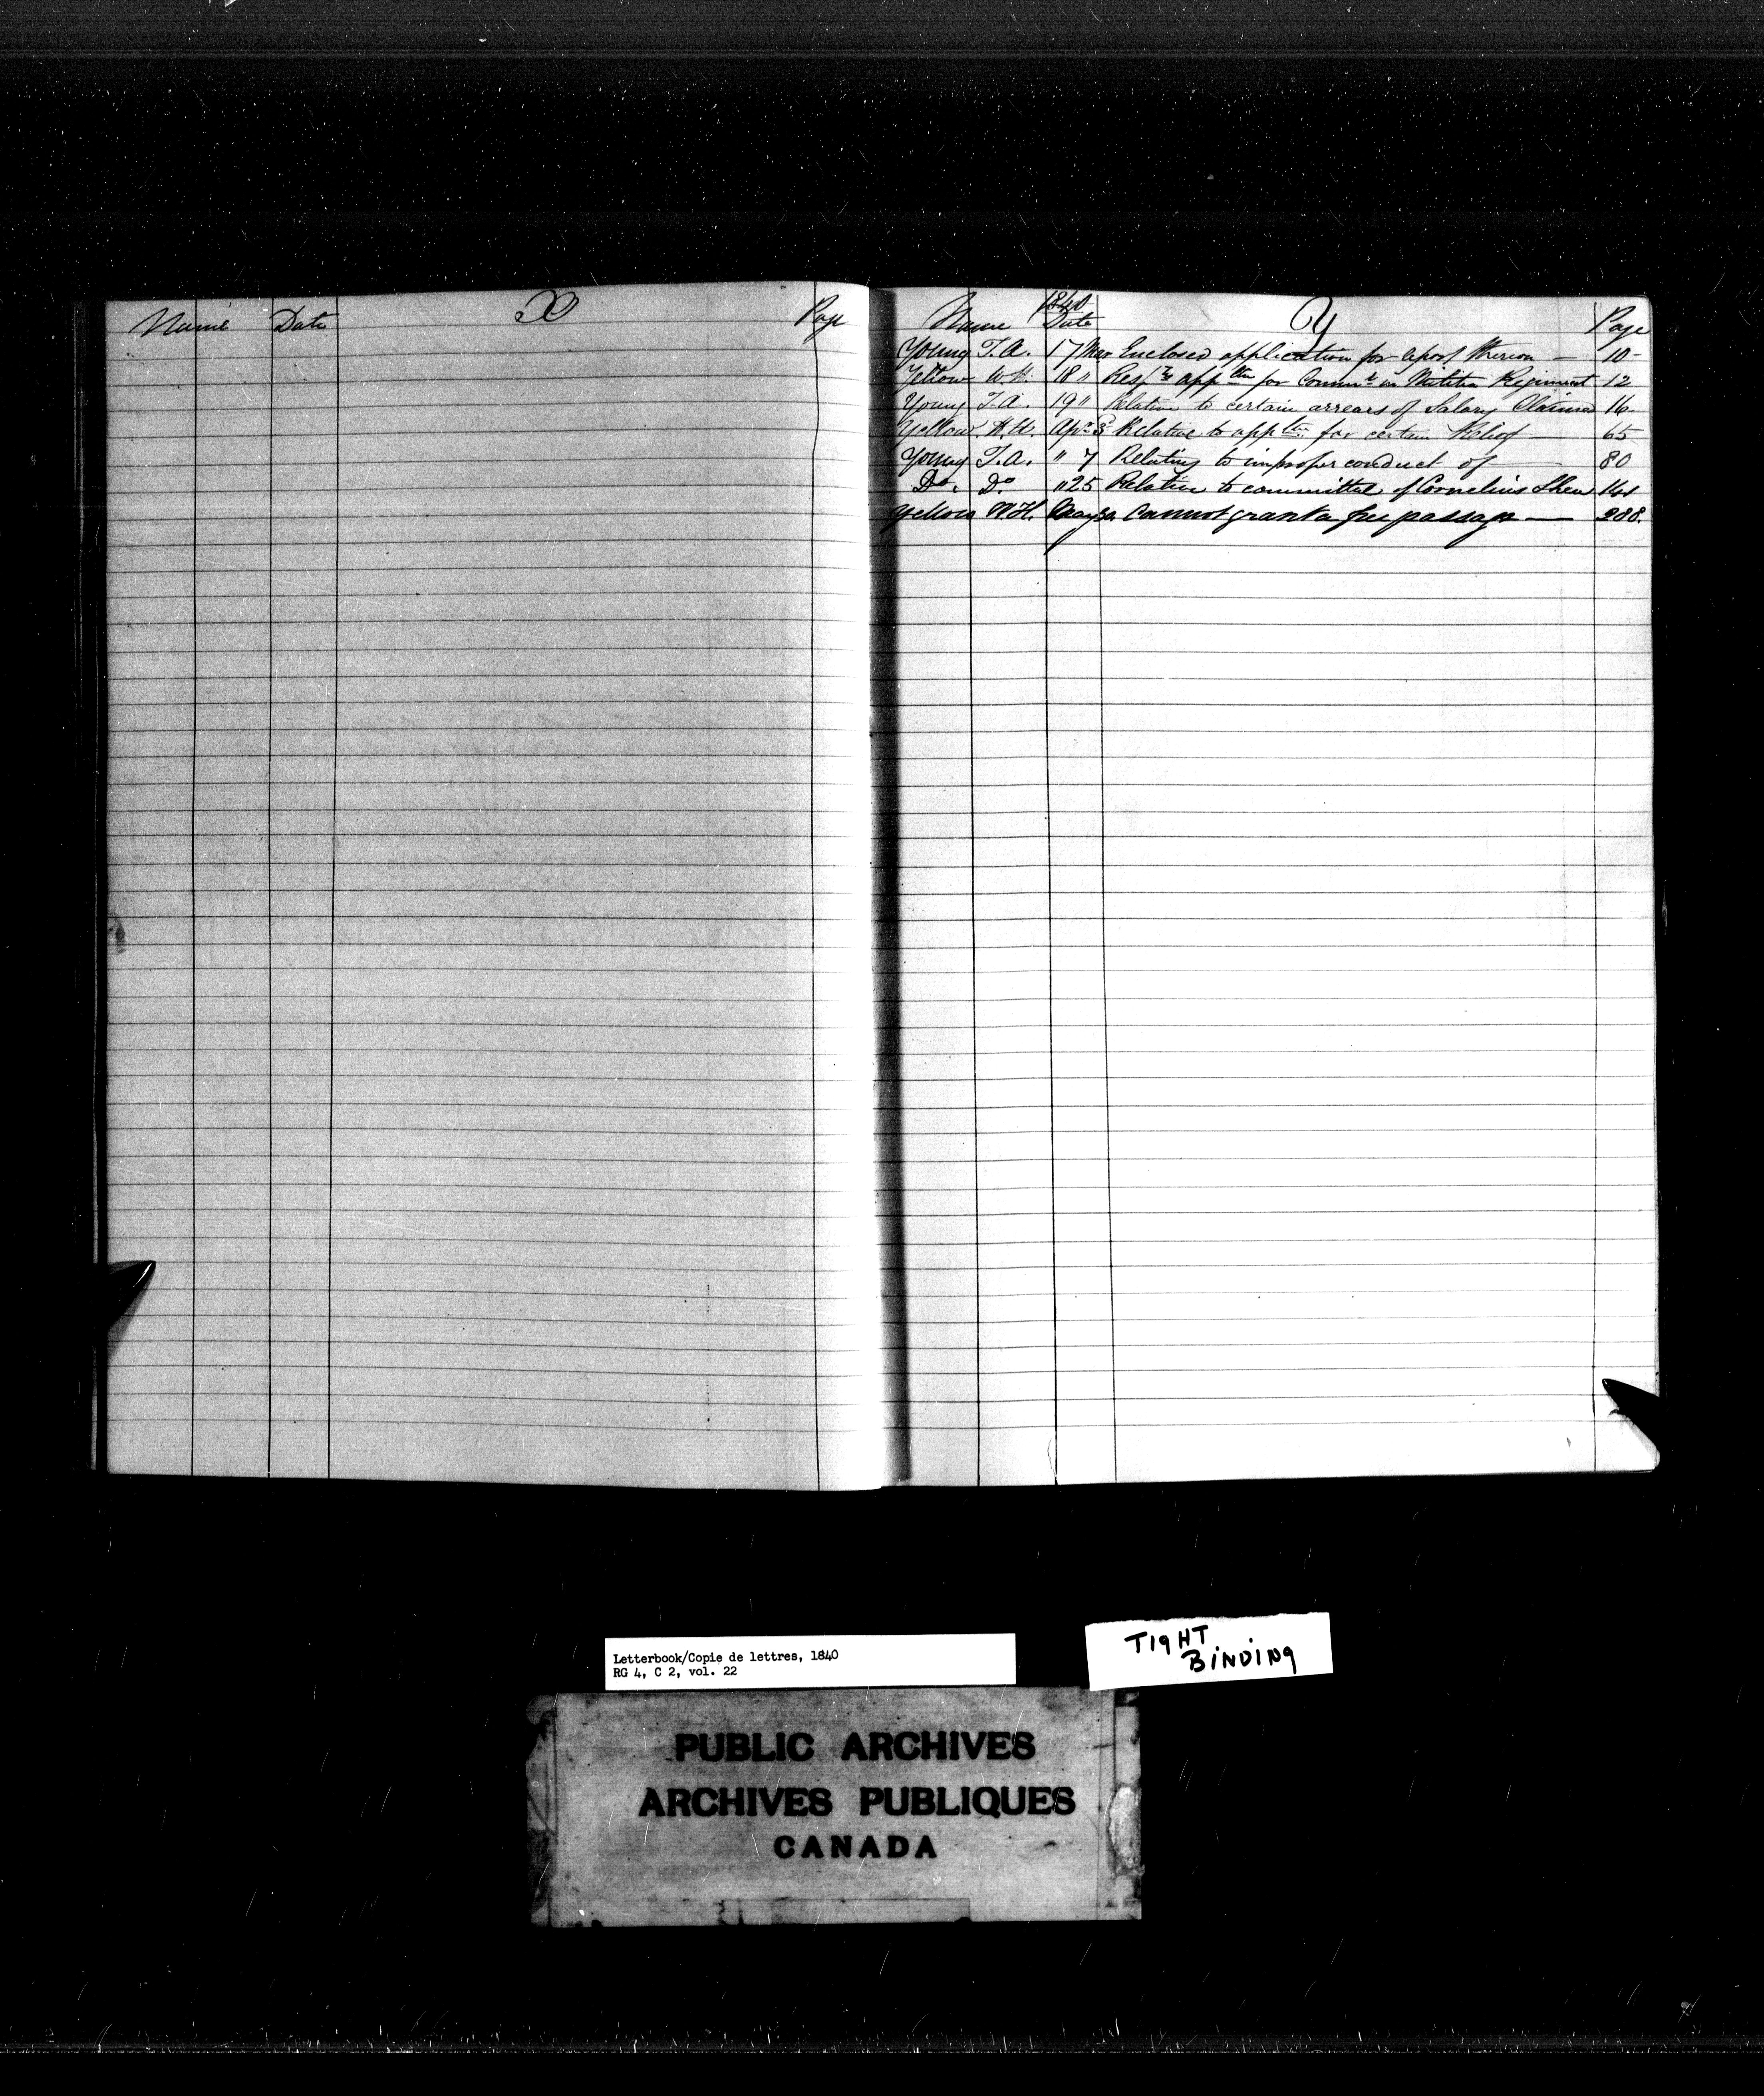 Name Date X Page
1840
Name Date Y Page
Young T. A. 17 Mar Enclosed application for report thereon — 10-
Yellow W. H. 18 " Resptg appltn for Commn in Militia Regiment 12
Young T. A. 19 " Relative to certain arrears of Salary Claimed 16
Yellow W. H. Apr 3 Relative to appltn for certain Relief — 65
Young T. A. " 7 Relating to improper conduct of — 80
Do. Do " 25 Relative to committal of Cornelius Shea
Yellow W. H. May 30 Cannot grant a free passage — 288.
Letterbook/Copie de lettres, 1840
RG 4, C 2, vol. 22
TIGHT
BINDING
PUBLIC ARCHIVES
ARCHIVES PUBLIQUES
CANADA